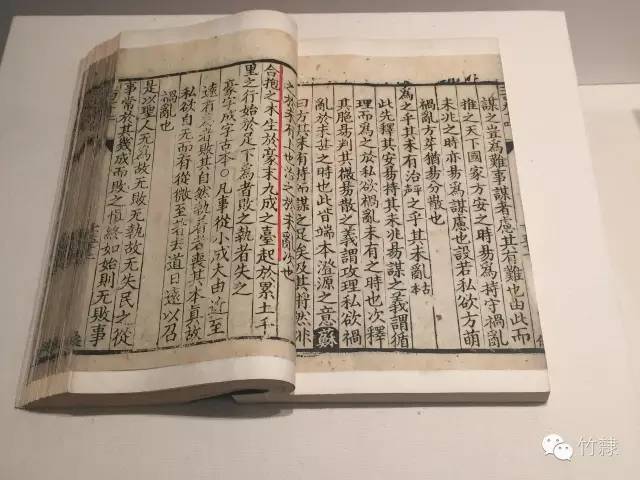 謀之豈為難事謀者應其有難也由此而
推之天下國家方安之時易為持守禍亂
未兆之時亦易為謀應也設若私欲方萌
禍亂方芽猶易分散也
為之乎其未有治之乎其未亂
此先釋其安易持其未兆易謀之義謂循
理而為之於私欲禍亂未有之時也次釋
其脆易判其微易散之義謂攻理私欲禍
亂於未甚之時也此皆端本澄源之意蘇
曰方其未有持而謀之足矣及其將然非
之於未有也治之於未亂次也
合抱之木生於豪末九成之臺起於累土千
里之行始於足下為者敗之執者失之
豪字成字古本〇凡事從小成大由近至
遠有為者敗其自然執有者喪其本真故
私欲自無而有從微至著去道日遠以召
禍亂也
是以聖人無為故无敗无執故无失民之從
事常於其幾成而敗之慎終如始則无敗事
竹隸